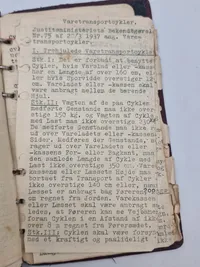 Varetransportcykler.
Justitsministeriets Bekendtgørelse
Nr. 75 af 1947 ang. Vare-
transportcykler.
I. Trehjulede Varetransportcykler.
Stk. I: Det er forbudt at benytte
Cykler, hvis Varerum eller -kasse
har en Længde af over 100 cm.
ler hvis Sporvidde overstiger
cm. Varestativet eller -kassen skal
være anbragt mellem de bærende
Hjul.
Stk. II: Vægten af de paa Cyklen
medførte Genstande maa ikke over-
stige 150 kg, og Vægten af Cykel
med Last maa ikke overstige 350
De medførte Genstande maa ikke
ud over Varestadets eller -kassens
Sider. Medføres der Genstande, som
rager ud over Varestadets eller
-kassens For- eller Bagkant,
den samlede Længde af Cykle med
Last ikke overstige 350 cm. Vare-
kassens eller Læssets Højde maa
bortset fra Transport af Cykler
ikke overstige 140 cm eller, naar
Læsset er anbragt bag Føreren,
cm regnet fra Jorden. Varekassen
eller Læsset skal være anbragt
ledes, at Føreren kan se Vejbanen
foran Cyklen i en Afstand af ikke
over 8 m regnet fra Førersædet.
Stk. III: Cyklen skal være forsynet
med et kraftigt og paalideligt